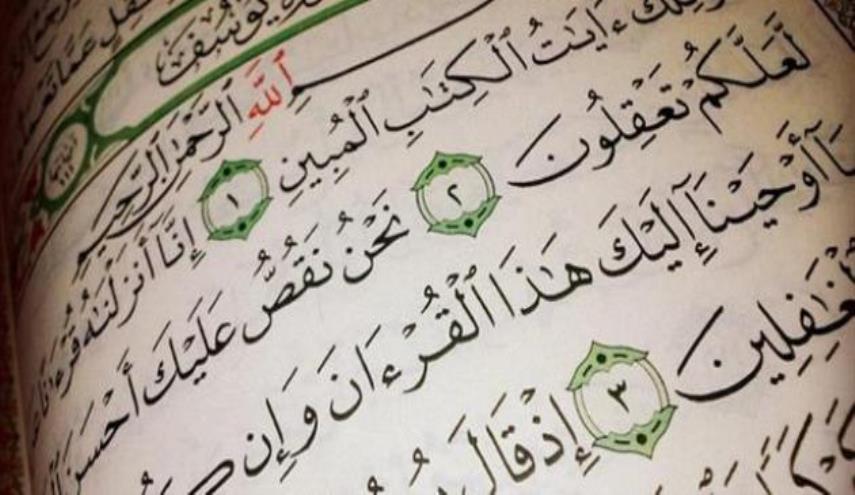 عَمَّا
يُوسُف
ٱللَّهِ ٱلرَّحْمَٰنِ ٱلرَّحِيمِ
ءَايَٰتُ ٱلْكِتَٰبِ ٱلْمُبِينِ ١ إِنَّآ أَنزَلْنَٰهُ قُرْءَٰنًا
لَّعَلَّكُمْ تَعْقِلُونَ ٢ نَحْنُ نَقُصُّ عَلَيْكَ أَحْسَنَ
أَوْحَيْنَآ إِلَيْكَ هَٰذَا ٱلْقُرْءَانَ وَإِن
غَٰفِلِينَ ٣ إِذْ قَالَ